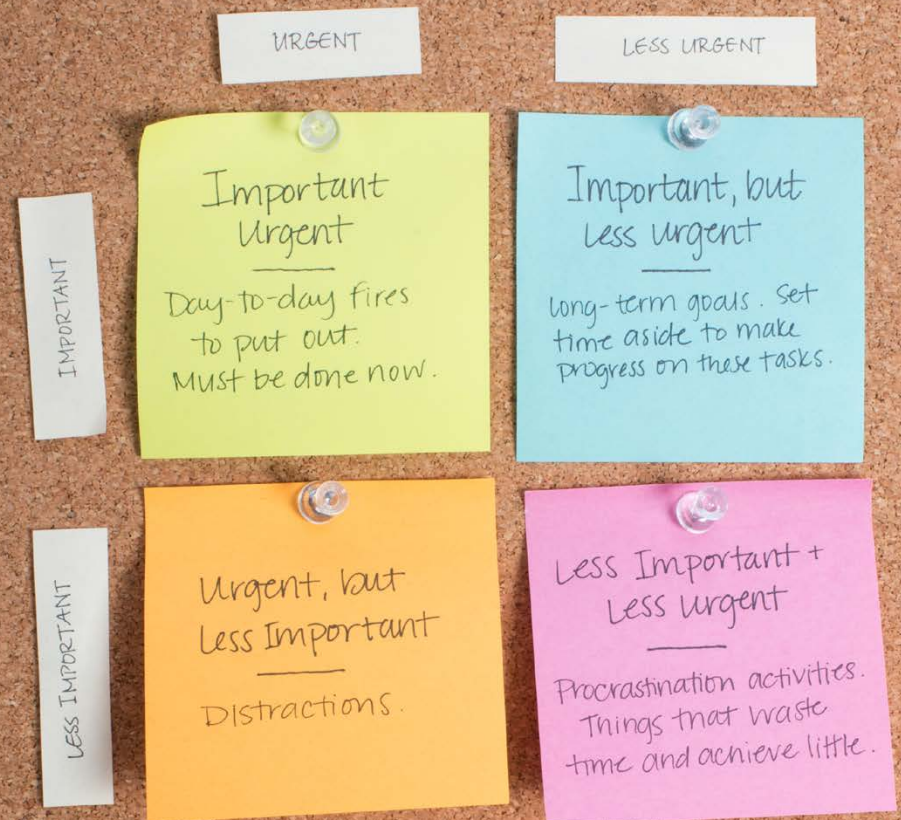 URGENT
LESS URGENT
IMPORTANT
Important
Urgent
Day-to-day fires
to put out.
Must be done now.
Important, but
Less Urgent
Long-term goals. Set
time aside to make
progress on these tasks.
LESS IMPORTANT
Urgent, but
Less Important
Distractions.
Less Important +
Less Urgent
Procrastination activities.
Things that waste
time and achieve little.